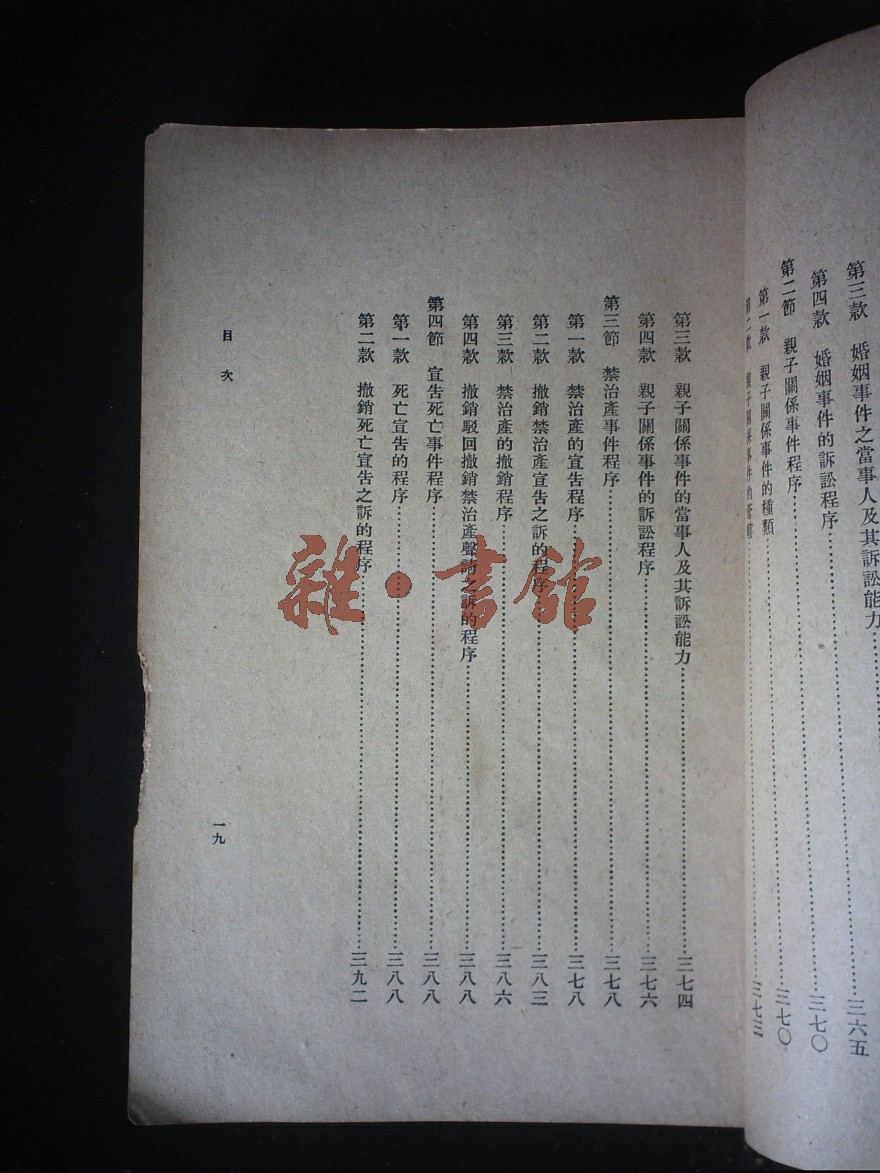 第三款 婚姻事件之當事人及其訴訟能力……三六五
第四款 婚姻事件的訴訟程序……三七〇
第二節 親子關係事件程序……三七〇
第一款 親子關係事件的種類……
第二款 親子關係事件的管轄……三七三
第三款 親子關係事件的當事人及其訴訟能力……三七四
第四款 親子關係事件的訴訟程序……三七六
第三節 禁治產事件程序……三七八
第一款 禁治產的宣告程序……三七八
第二款 撤銷禁治產宣告之訴的程序……三八三
第三款 禁治產的撤銷程序……三八六
第四款 撤銷駁回撤銷禁治產聲請之訴的程序……三八八
第四節 宣告死亡事件程序……三八八
第一款 死亡宣告的程序……三八八
第二款 撤銷死亡宣告之訴的程序……三九二
目次
一九
雜·書館